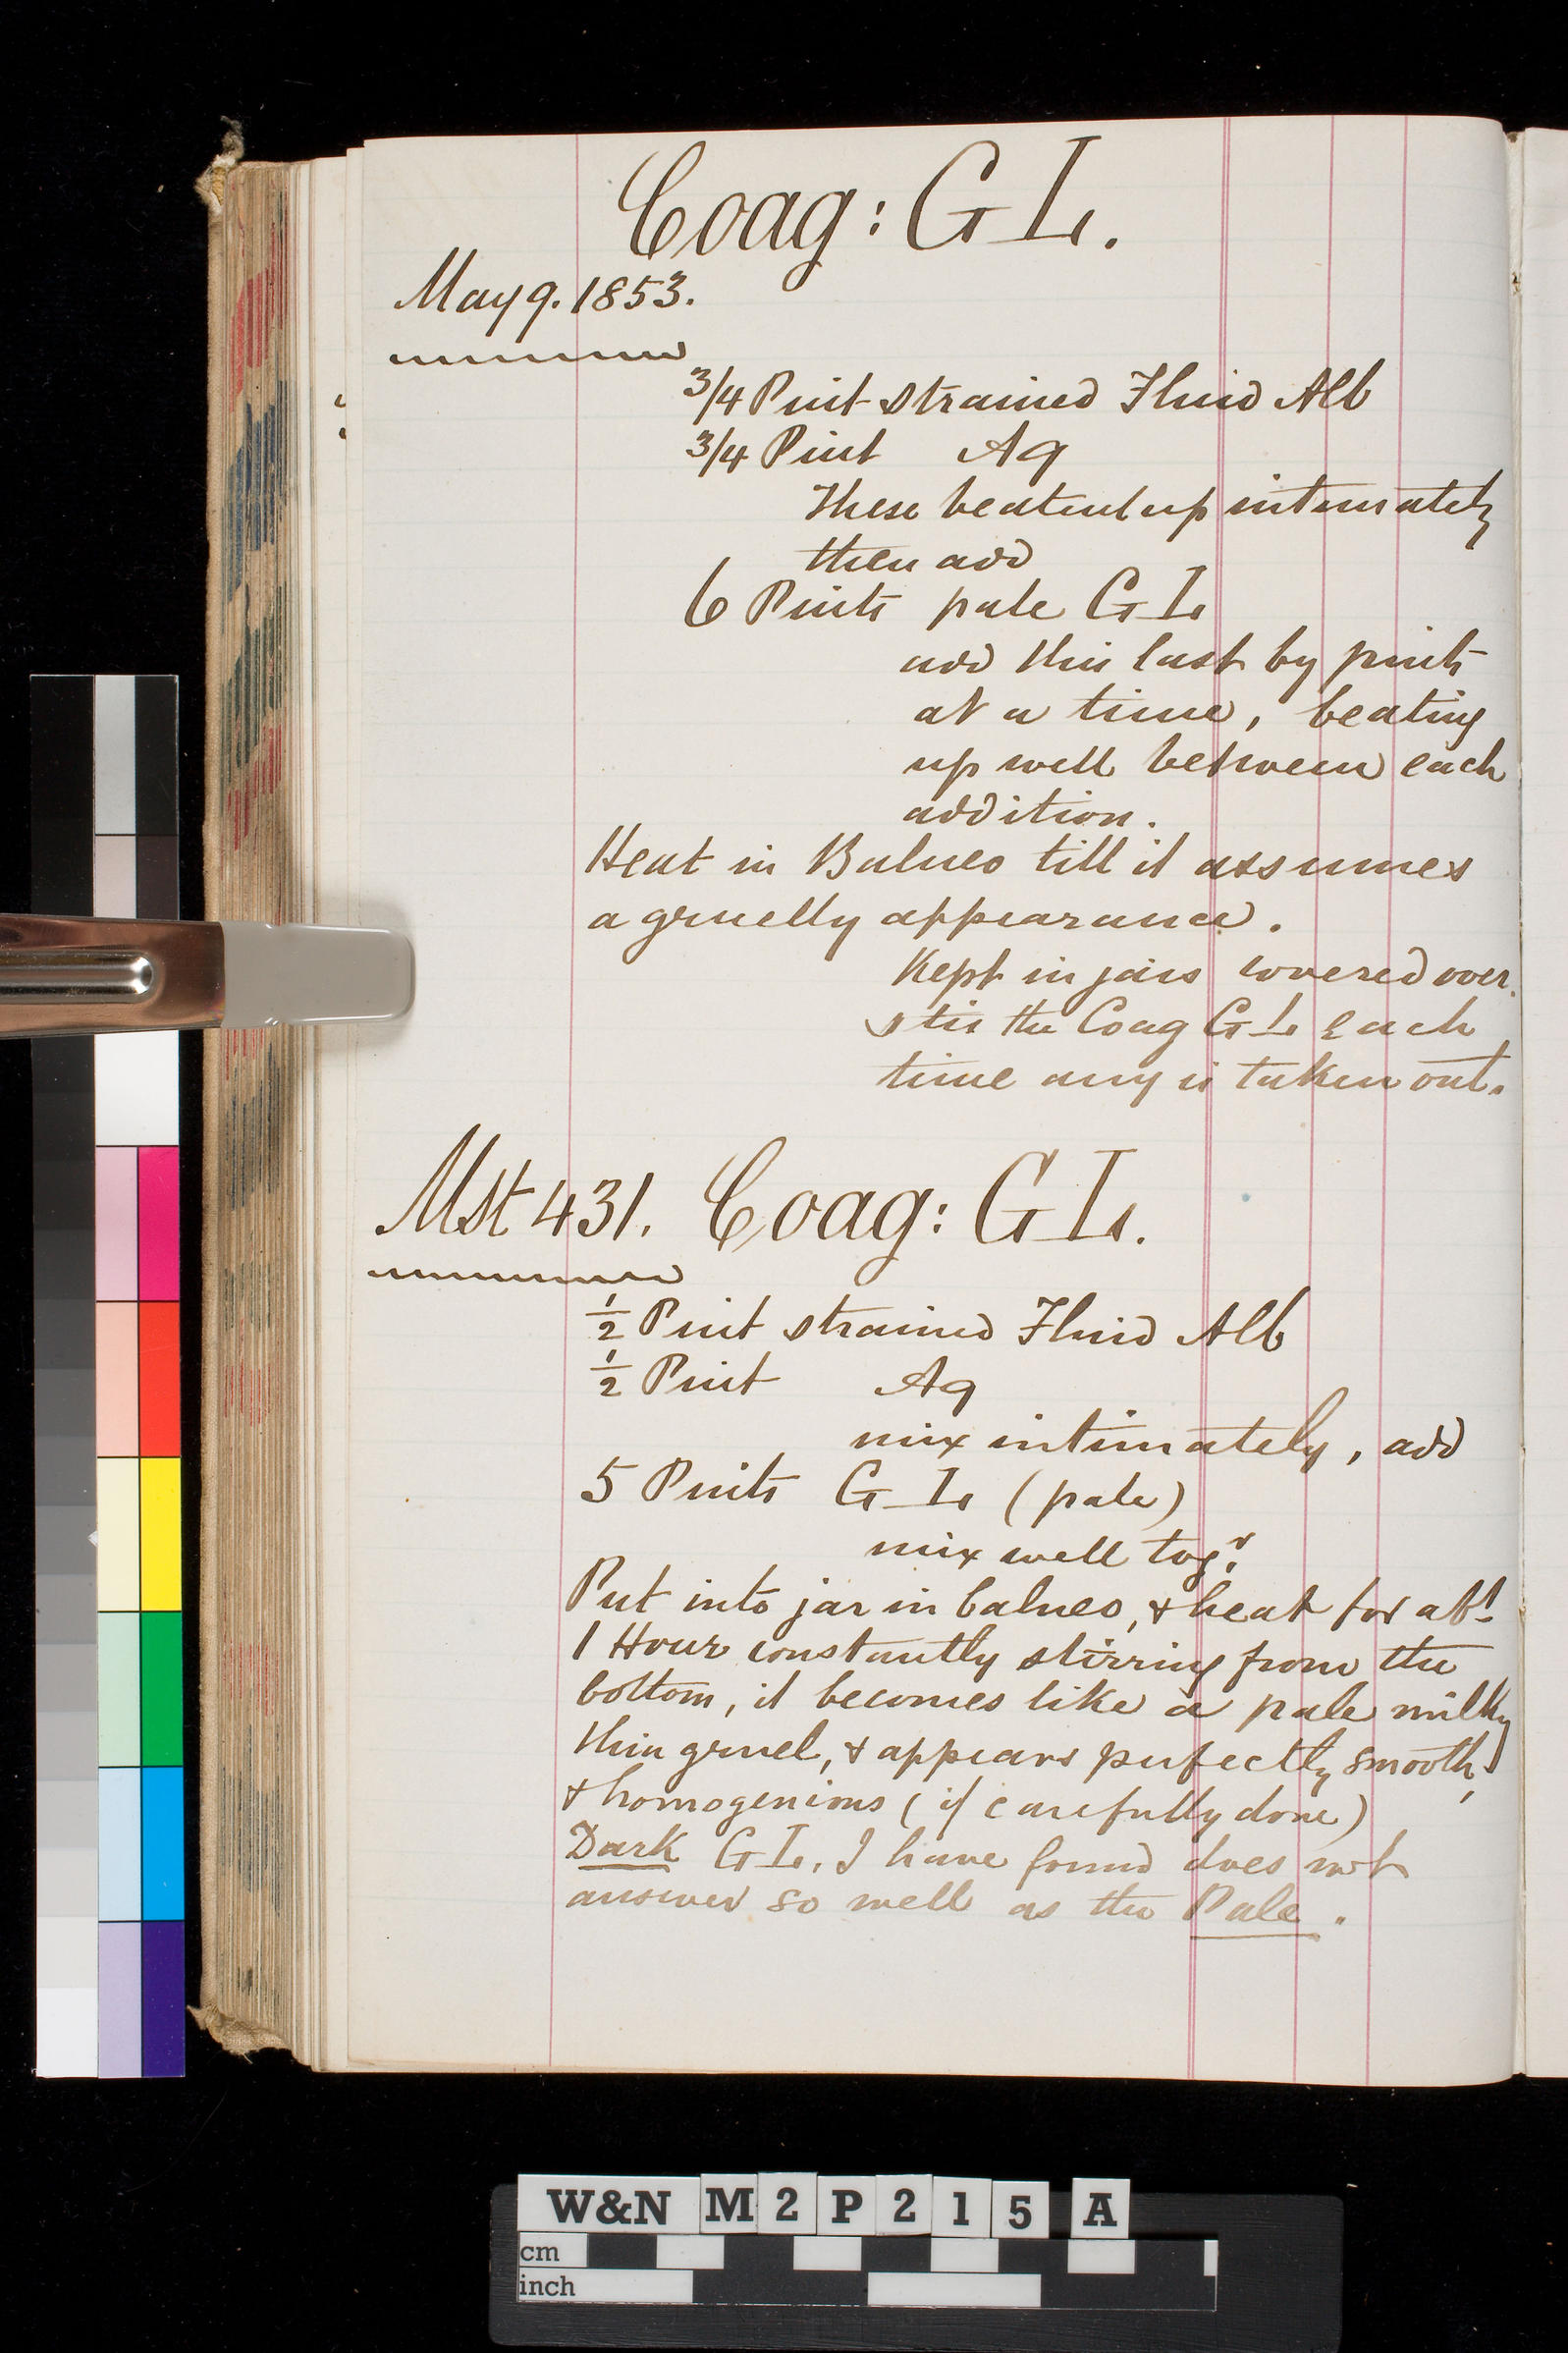 Coag: GL.
May 9. 1853.
3/4 Pint strained Fluid Alb
3/4 Pint Aq
These beatend up intimately
then add
6 Pints pale GL
add this last by pints
at a time, beating
up well between each
addition.
Heat in Balneo till it assumes
a gruelly appearance.
Kept in jars covered over.
stir the Coag GL each
time any is taken out.
Mst 431. Coag: GL.
1/2 Pint strained Fluid Alb
1/2 Pint Aq
mix intimately, add
5 Pints GL (pale)
mix well togr.
Put into jar in balneo, & heat for abt.
1 Hour constantly stirring from the
bottom, it becomes like a pale milky
thin gruel, & appears perfectly smooth,
& homogenious (if carefully done)
Dark GL, I have found does not
answer so well as the Pale.
W&N M2P215 A
cm
inch